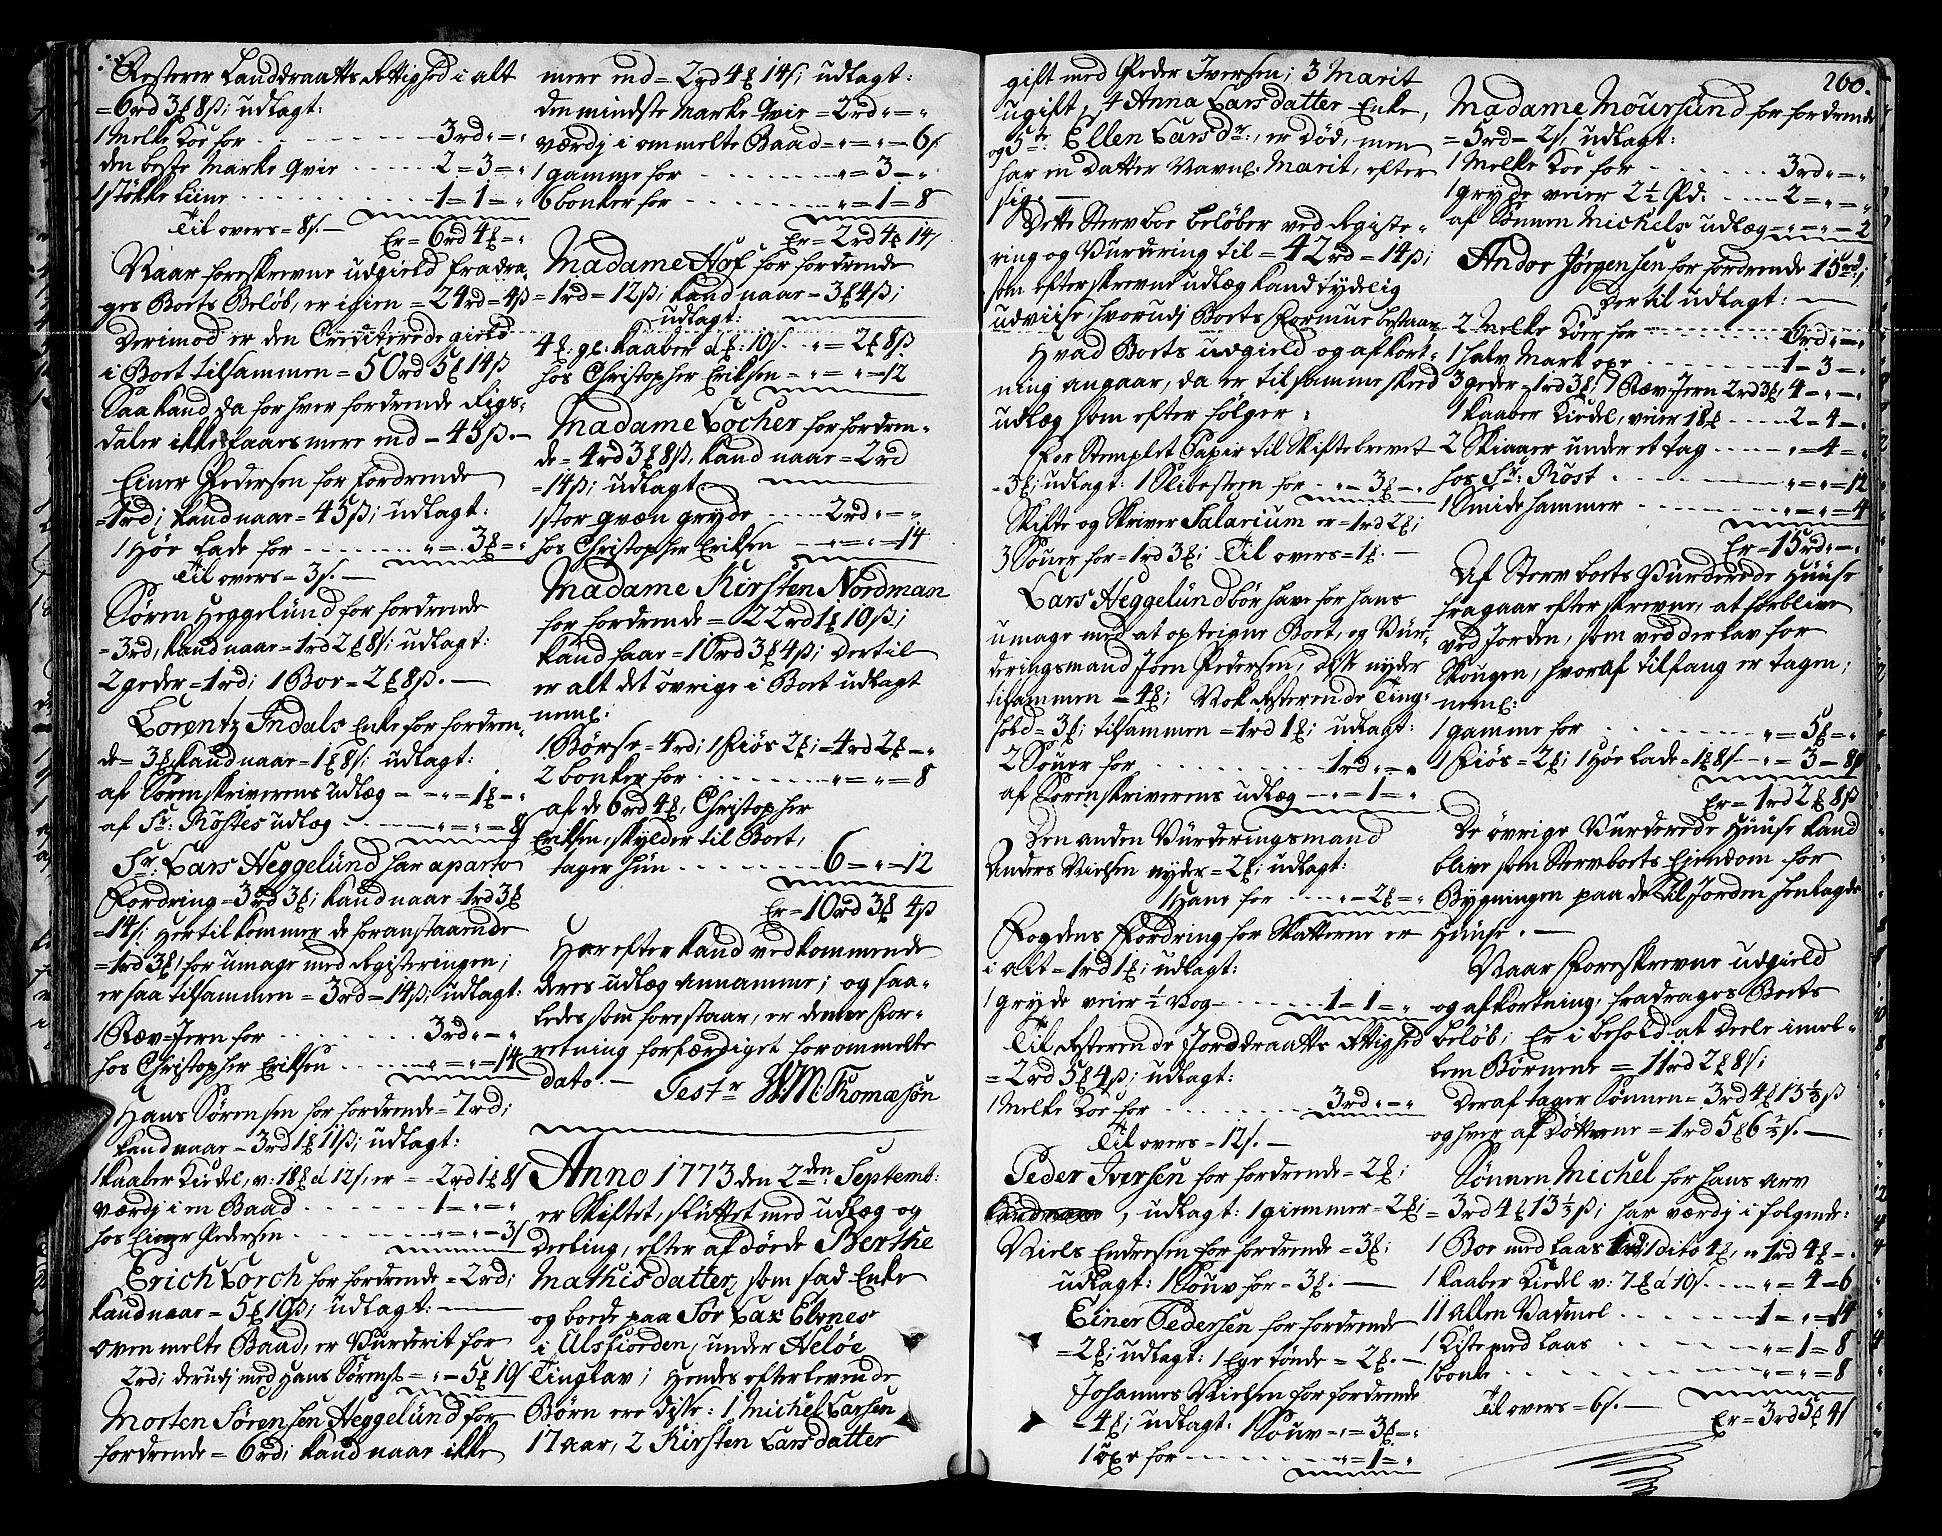 Resterer Landdraatts Rettighed i alt
= 6rd 3ƒ 8ß; udlagt:
1 Melke Koe for ------ 3rd " = "
den beste Marke Qvie ----- 2 = 3 = "
1 støkke Liine ------ 1 = 1 = "
Til overs = 8ß. — Er = 6rd 4ƒ = "
Naar foreskrevne udgield fradra-
ges Boets Beløb, er igien = 24rd = 4ß
Derimod er den Crediterede gield
i Boet tilsammen = 50rd 5ƒ 14ß
Saa kand da for hver fordrende Rigs-
daler ikke faaes mere end = 45ß. —
Einer Pedersen for fordrende
= 1rd; kand naae = 45ß; udlagt:
1 Høe Lade for ------ " = 3ƒ = "
Til overs = 3ß. —
Søren Heggelund for fordrende
= 3rd, kand naae = 1rd 2ƒ 8ß; udlagt:
2 geder = 1rd; 1 Boe = 2ƒ 8ß. —
Lorentz Indals Enke for fordren-
de = 3ƒ, kand naae = 1ƒ 8ß; udlagt:
af Sorenskriverens udlæg - - " = 1ƒ - "
af Sr: Røstes udlæg ------ " = " = 8ß
Sr: Lars Heggelund har aparte
Fordring = 3rd 3ƒ; kand naae 1rd 3ƒ
= 14ß: hertil kommer de foranstaaende
= 1rd 3ƒ, for umage med Registeringen;
er saa tilsammen = 3rd = 14ß; udlagt:
1 Ræv-Jern for ------ 3rd " = "
hos Christopher Eriksen ----- " = " = 14
Hans Sørensen for fordrende = 7rd;
kand naae = 3rd 1ƒ 11ß; udlagt:
1 Kaaber Kiedel, v: 18ƒ á 12ß, er = 2rd 1ƒ 8ß
værdj i en Baad ------ 1 = " = "
hos Einer Pedersen ------ " = " = 3ß
Erich Lorch for fordrende = 2rd;
kand naae = 5ƒ 10ß; udlagt: —
oven melte Baad, er Vurderit for
2rd; derudj med Hans Sørens: = " = 5ƒ 10ß
Morten Sørensen Heggelund for
fordrende = 6rd; kand naae ikke
mere end = 2rd 4ƒ 14ß; udlagt:
den mindste Marke Qvie = 2rd " = "
værdj i ommelte Baad = " = " = 6ß
1 gamme for ------ " = 3 = "
6 bonker for ------ " = 1 = 8
Er = 2rd 4ƒ 14ß
Madame Hof for fordrende
= 1rd = 12ß; kand naae = 3ƒ 4ß;
udlagt:
4ƒ: gl: kaaber á ƒ: 10ß. " = 2ƒ 8ß
hos Christopher Eriksen = " = " = 12
Madame Locher for fordren-
de = 4rd 3ƒ 8ß, kand naae = 2rd
= 14ß; udlagt
1 stor græn gryde ----- 2rd " = "
hos Christopher Eriksen - " = " = 14
Madame Kirsten Nordman
for fordrende = 22rd 1ƒ 10ß;
kand faae = 10rd 3ƒ 4ß; dertil
er alt det øvrige i Boet udlagt
neml:
1 Børse = 4rd; 1 Fiøs 2ƒ; = 4rd 2ƒ = "
2 bonker for ------ " = " = 8
af de 6rd 4ƒ, Christopher
Eriksen, skylder til Boet,
tager hun ------ 6 = " = 12
Er = 10rd 3ƒ 4ß
Her efter kand vedkommende
deres udlæg annamme; og saa-
ledes som forestaar, er denne For-
retning forfærdiget for ommelte
dato. — Test: WM: Thomæsøn
Anno 1773 den 2den Septemb:
er Skiftet, sluttet med udlæg og
deeling, efter afdøde Berthe
Mathisdatter, som sad Enke
og boede paa Sør Lax Elvnes
i Ulsfiorden, under Helöe
Tinglav; Hendes efterlevende
Børn ere disse: 1 Michel Larsen
17 aar, 2 Kirsten Larsdatter
gift med Peder Iversen; 3 Marit
ugift, 4 Anna Larsdatter Enke,
og 5te Ellen Larsdr:, er død, men
har en Datter Navnl: Marit, efter
sig. —
Dette Sterv boe beløber ved Registe-
ring og Vurdering til = 42rd = 14ß;
som efterskrevne udlæg kand tydelig
udviise, hvorudj Boets Formue bestaar
Hvad Boets udgield og afkort-
ning angaar, da er tilsamme skeed
udlæg som efter følger:
For Stemplet Papir til Skiftebrevet
= 3ƒ; udlagt: 1 Slibesteen for " = 3ƒ - "
Skifte og Skriver Salarium er = 1rd 2ƒ;
3 Souer for = 1rd 3ƒ; Til overs = 1ƒ. —
Lars Heggelund bør have for hans
umage med at optegne Boet, og Vur-
deringsmand Joen Pedersen, diste nyder
tilsammen = 4ƒ; Nok Resterende Ting-
hold = 3ƒ; tilsammen = 1rd 1ƒ; udlagt:
2 Souer for ------ 1rd " = "
af Sorenskriverens udlæg - " = 1 = "
Den anden Vurderingsmand
Anders Nielsen nyder = 2ƒ; udlagt:
1 Hane for ---- " = 2ƒ = "
Fogdens Fordring for Skatterne er
i alt = 1rd 1ƒ; udlagt:
1 gryde veier ½ Vog ------ 1 = 1 = "
Til Resterende Jorddraatts Rettighed
= 2rd 5ƒ 4ß; udlagt:
1 Melke Koe for ------ 3rd = "
Til overs = 12ß. —
Peder Iversen for fordrende = 2ƒ;
, udlagt: 1 giemmer = 2ƒ;
Niels Endresen for fordrende = 3ƒ;
udlagt: 1 Souv for = 3ƒ. —
Einer Pedersen for fordrende
= 2ƒ; udlagt: 1 Ege tønde = 2ƒ. —
Johannes Nielsen for fordrende
= 4ƒ; udlagt: 1 Souv = " = 3ƒ = "
1 øxe for ------ " = 1 = "
260.
Madame Moursund for fordrende
= 5rd = 2ß, udlagt:
1 Melke Koe for ------ 3rd " = "
1 gryde veier 2½ Pd: ---- 2 = " = "
af Sønnen Michels udlæg = " = " = 2
Andor Jørgensen for fordrende 15rd;
Dertil udlagt: —
2 Melke Köer for ------ 6rd " = "
1 halv Mark oxe ------ 1 = 3 = "
3 geder = 1rd 3ƒ; 1 Ræv-Jern 2rd 3ƒ, 4 = " = "
1 kaaber Kiedel, veier 18ƒ ---- 2 = 4 = "
2 Skiaaer under et tag ---- " = 4 = "
hos Sr: Röst ------ " = " = 12
1 Smide hammer ------ " = " = 4
Er = 15rd = "
Af Stervboets Vurderede Huuse
fragaar efterskrevne, at forblive
ved Jorden, som vedderlav for
Skougen, hvoraf tilfang er tagen;
neml:
1 gamme for ------ " = 5ƒ = "
1 Fiös = 2ƒ; 1 Høe Lade = 1ƒ 8ß - " = 3 = 8ß
Er = 1rd 2ƒ 8ß
De øvrige Vurderede Huuse kand
blive som Stervboets Eiendom for
Bygningen paa de til Jorden henlagde
Huuse. —
Naar Foreskrevne udgield
og afkortning, fradrages Boets
beløb; Er i behold at deele imel-
lem Børnene = 11rd 2ƒ 8ß;
Deraf tager Sønnen = 3rd 4ƒ 13⅓ß
og hver af Døttrene = 1rd 5ƒ 6⅔ß. —
Sønnen Michel for hans arv
= 3rd 4ƒ 13⅓ß; har værdj i følgende:
1 Boe med laas 1rd; 1 dito 4ƒ, = 1rd 4ƒ = "
1 kaaber Kiedel v: 7ƒ á 10ß. --- " = 4 = 6
11 Allen Vadmel ------ 1 = " = 14
1 Kiste med laas ------ " = 1 = 8
1 bonke ------ " = " = 8
Til overs = 6ß. — Er = 3rd 5ƒ 4ß